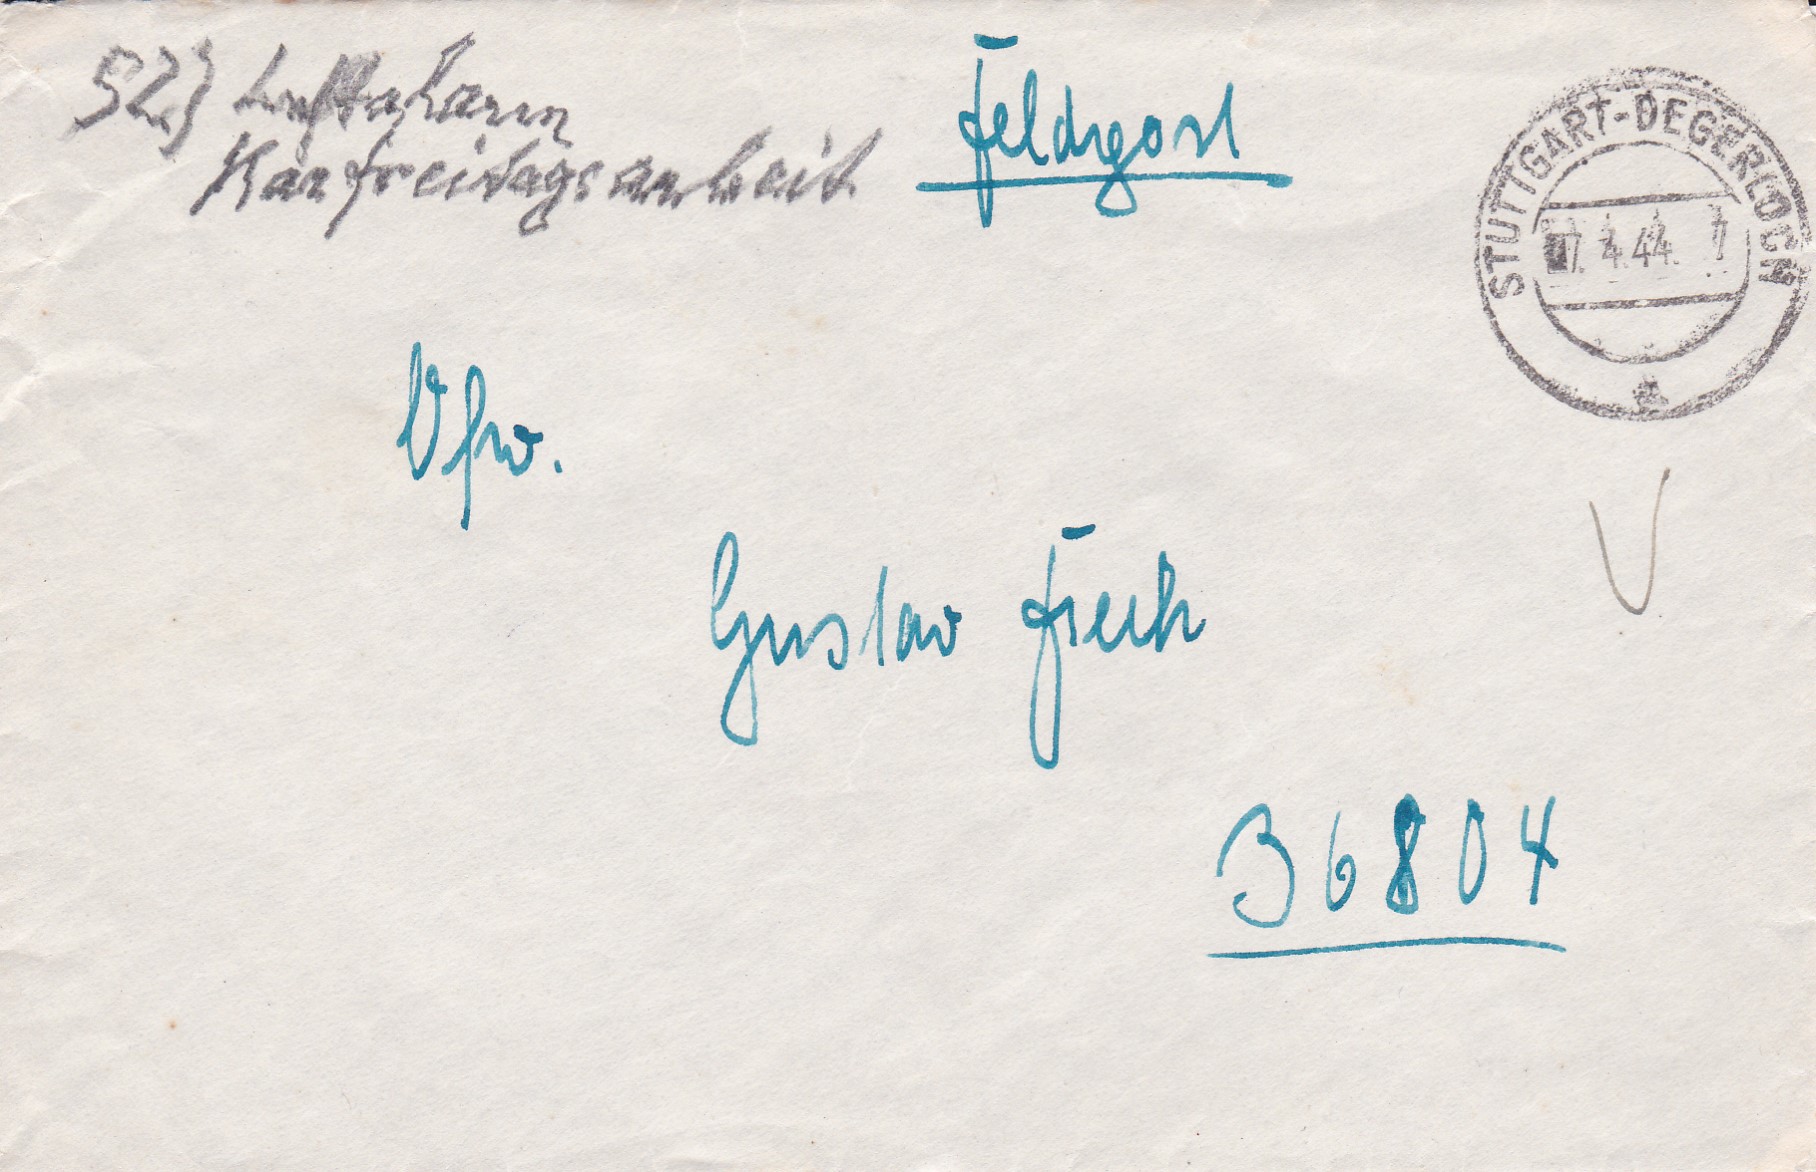 52.) Luftalarm
Karfreitagsarbeit
Feldpost
STUTTGART-DEGERLOCH
7.4.44. 7
a
Ofw.
Gustav Frech
36804